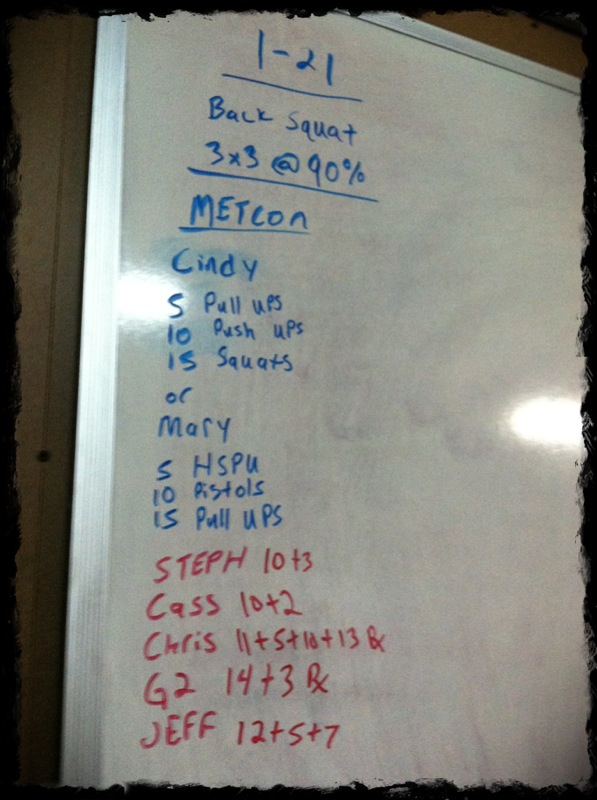 1-21
Back Squat
3x3 @ 90%
METCON
Cindy
5 Pull ups
10 Push ups
15 Squats
or
Mary
5 HSPU
10 Pistols
15 Pull ups
STEPH 10+3
Cass 10+2
Chris 11+5+10+13 Rx
G2 14+3 Rx
JEFF 12+5+7